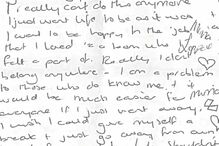 I really can't do this anymore
I just want life to be as it was
I want to be happy in the job
that I loved in a team who I
felt a part of. Really I don't
belong anywhere - I am a problem
to those who do know me, & it
would be much easier for
everyone if I just went away.
I wish I could give myself a
break & just go away from